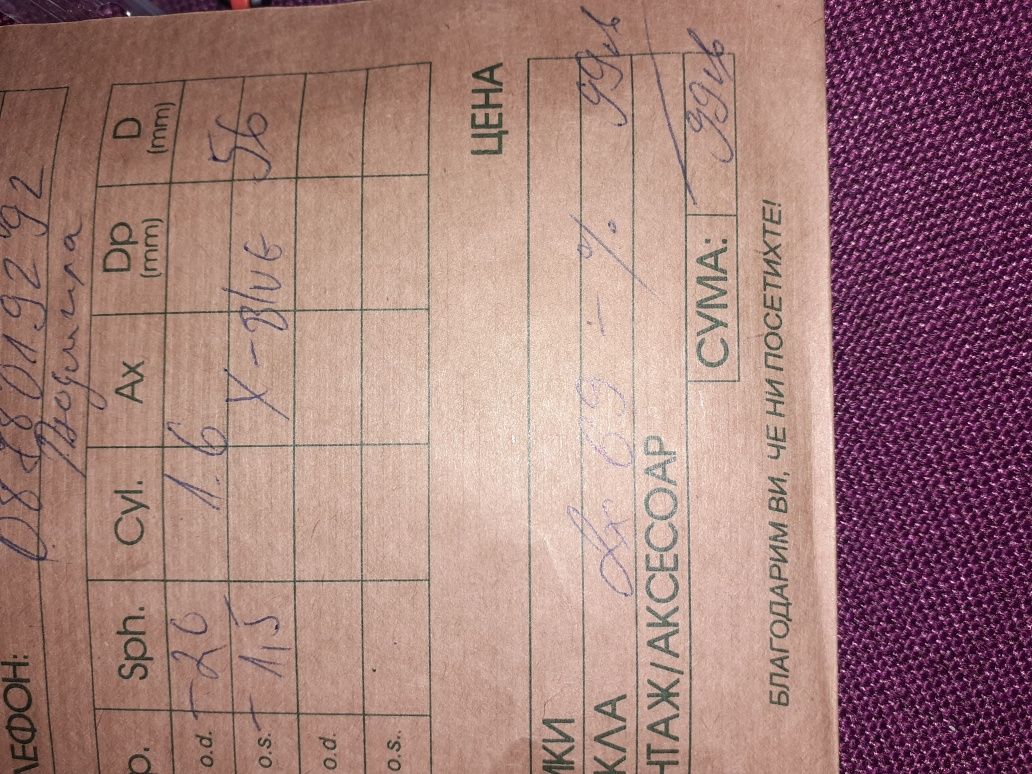 ЛЕФОН: 0878019292
Людмила
р. Sph. Cyl. Ax Dp (mm) D (mm)
o.d. -20 1.6
o.s. -1,5 X-Blue 56
o.d.
o.s..
ЦЕНА
ИКИ
КЛА 2x69 :- % 99лв
НТАЖ/АКСЕСОАР
СУМА: 99лв
БЛАГОДАРИМ ВИ, ЧЕ НИ ПОСЕТИХТЕ!